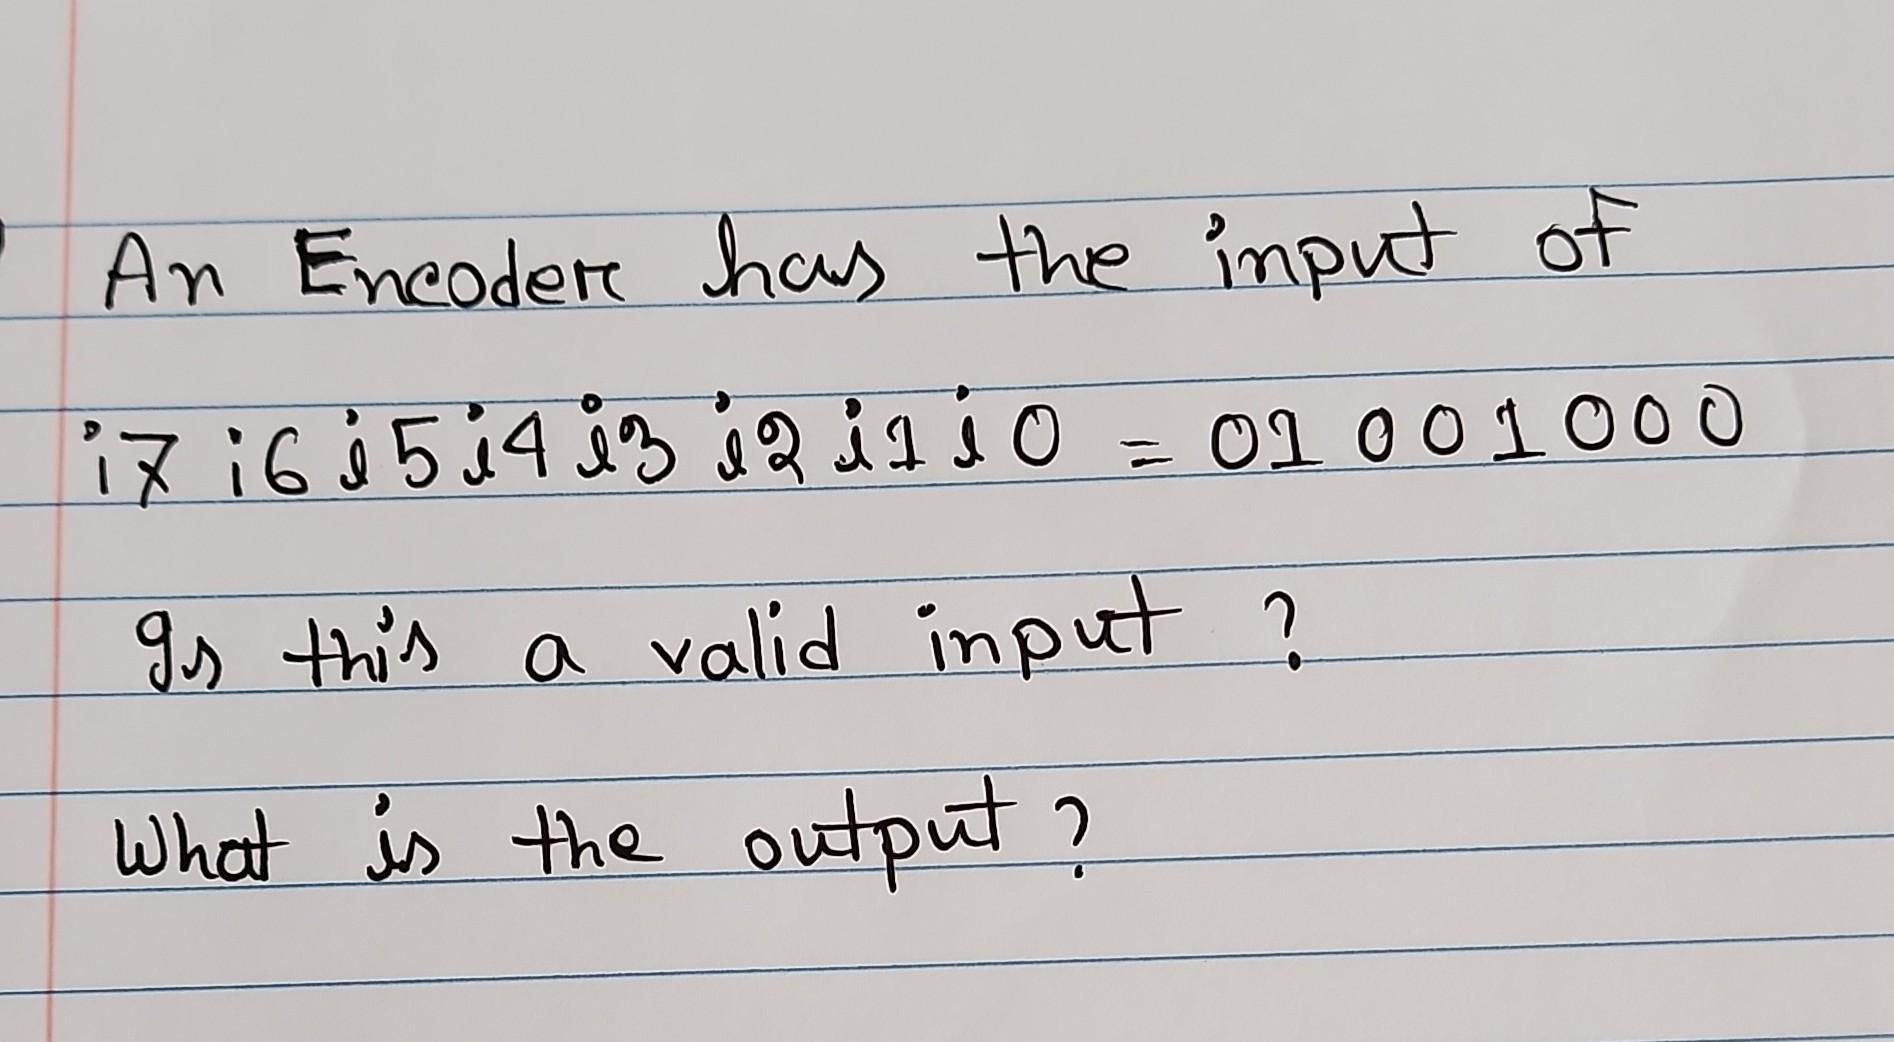 An Encoder has the input of
i7 i6 i5 i4 i3 i2 i1 i0 = 01 001000
Is this a valid input ?
What is the output ?